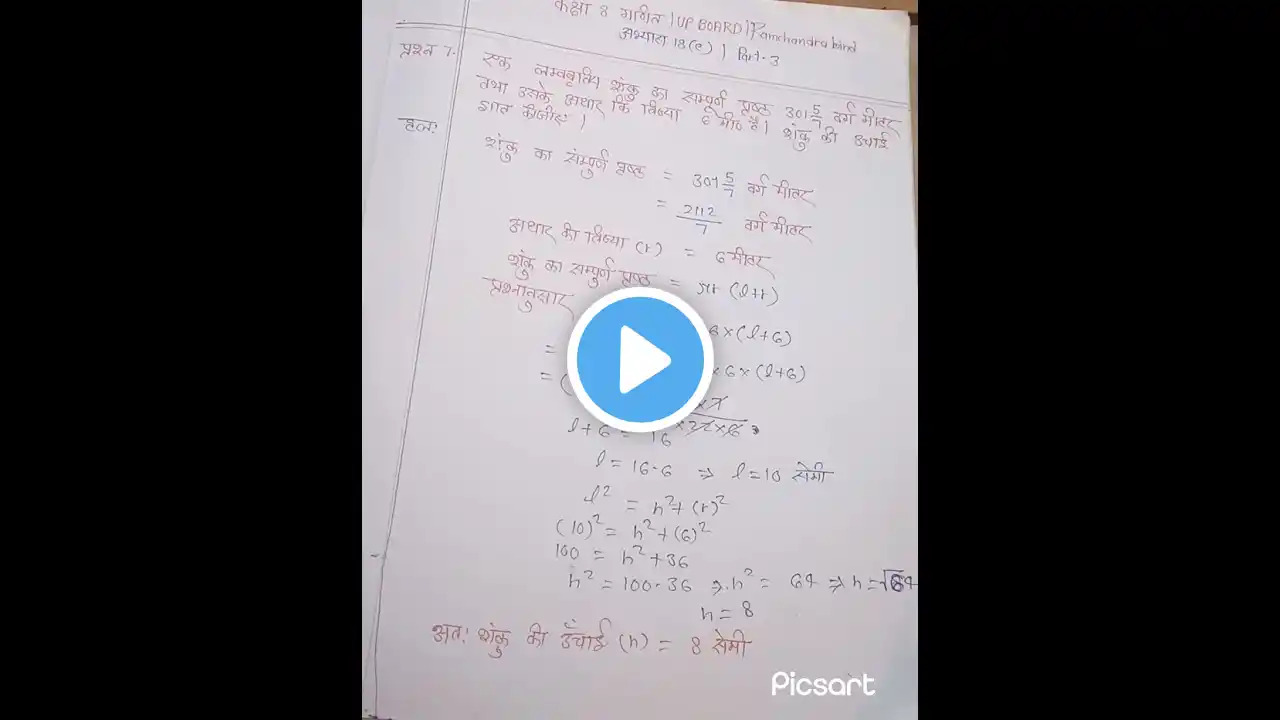 कक्षा 8 गणित | UP BOARD | Ramchandra bind
अभ्यास 18(c) | Part-3
प्रश्न 7. एक लम्बवृत्तीय शंकु का सम्पूर्ण पृष्ठ 301 5/7 वर्ग मीटर
तथा उसके अधार कि त्रिज्या 6 मी० है। शंकु की उचाई
ज्ञात कीजीए।
हल:
शंकु का संम्पुर्ण पृष्ठ = 301 5/7 वर्ग मीटर
= 2112/7 वर्ग मीटर
अधार की त्रिज्या (r) = 6 मीटर
शंकु का सम्पुर्ण पृष्ठ = πr (l+r)
प्रश्नानुसार
×(l+6)
=
= ( ×6×(l+6)
×7
l+6 = ×22×6
16
l = 16-6 ⇒ l=10 सेमी
l² = h²+(r)²
(10)² = h²+(6)²
100 = h²+36
h² = 100-36 ⇒ h² = 64 ⇒ h=√64
h = 8
अत: शंकु की उँचाई (h) = 8 सेमी
Picsart